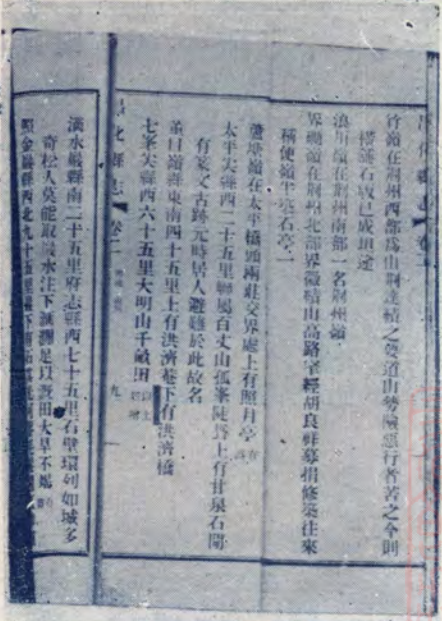 竹嶺在荆州西部爲由荆達績之要道山勢險惡行者苦之今則
石坡已成坦途
浪川嶺在荆州南部一名荆州嶺
嶺在荆州北部界徽績山高路窄經胡良鮮募捐修築往來
稱便嶺半築石亭一
嶺在太平橋頭兩莊交界處上有照月亭
太平尖縣西二十五里聯屬百丈山孤峯陡聳上有甘泉石開
有篆文古跡元時居人避難於此故名
嶺縣東南四十五里上有洪濟菴下有洪濟橋
七峯尖縣西六十五里大明山千畝田
昌化縣志 卷二 九
滴水巖縣南二十五里府志縣西七十五里石壁環列如城多
奇松人莫能取巖水注下深淵足以溉田大旱不竭
縣西北九十五里